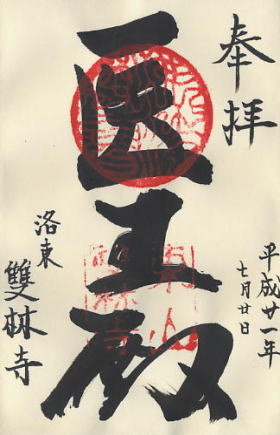 奉拝
平成廿一年
七月廿日
医王殿
洛東
雙林寺